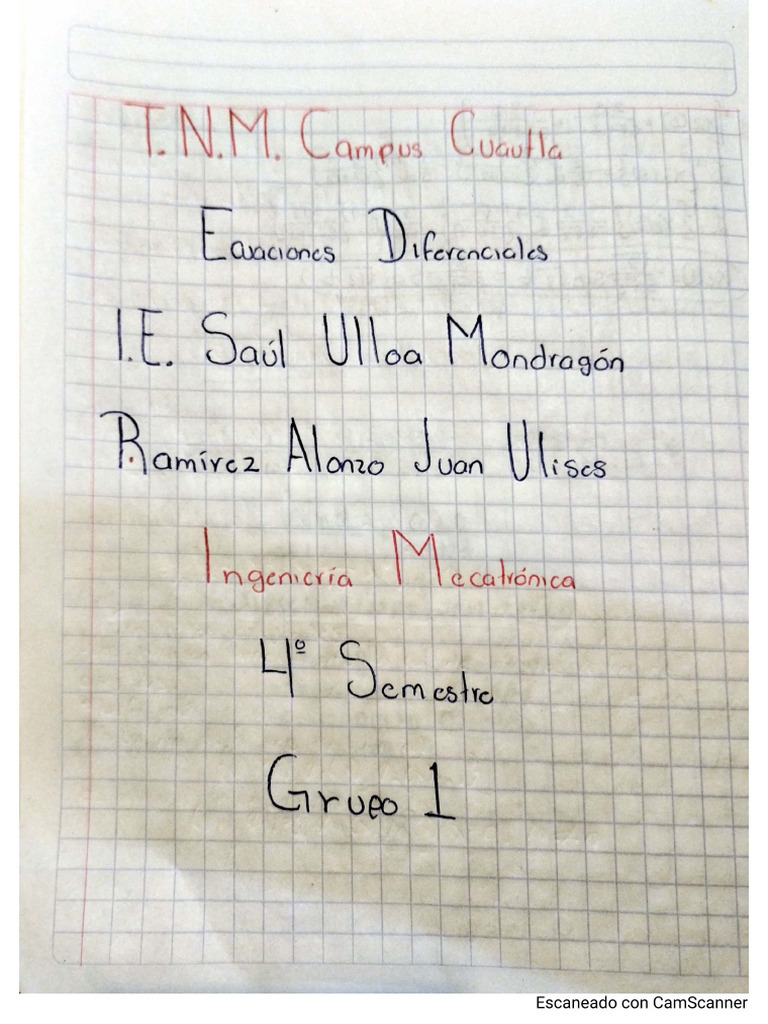 T.N.M. Campus Cuautla
Ecuaciones Diferenciales
I.E. Saúl Ulloa Mondragón
Ramírez Alonzo Juan Ulises
Ingeniería Mecatrónica
4º Semestre
Grupo 1
Escaneado con CamScanner